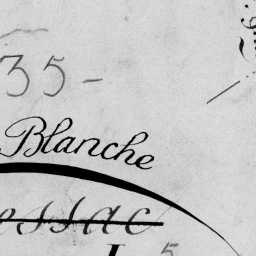 35-
Blanche
essac
5